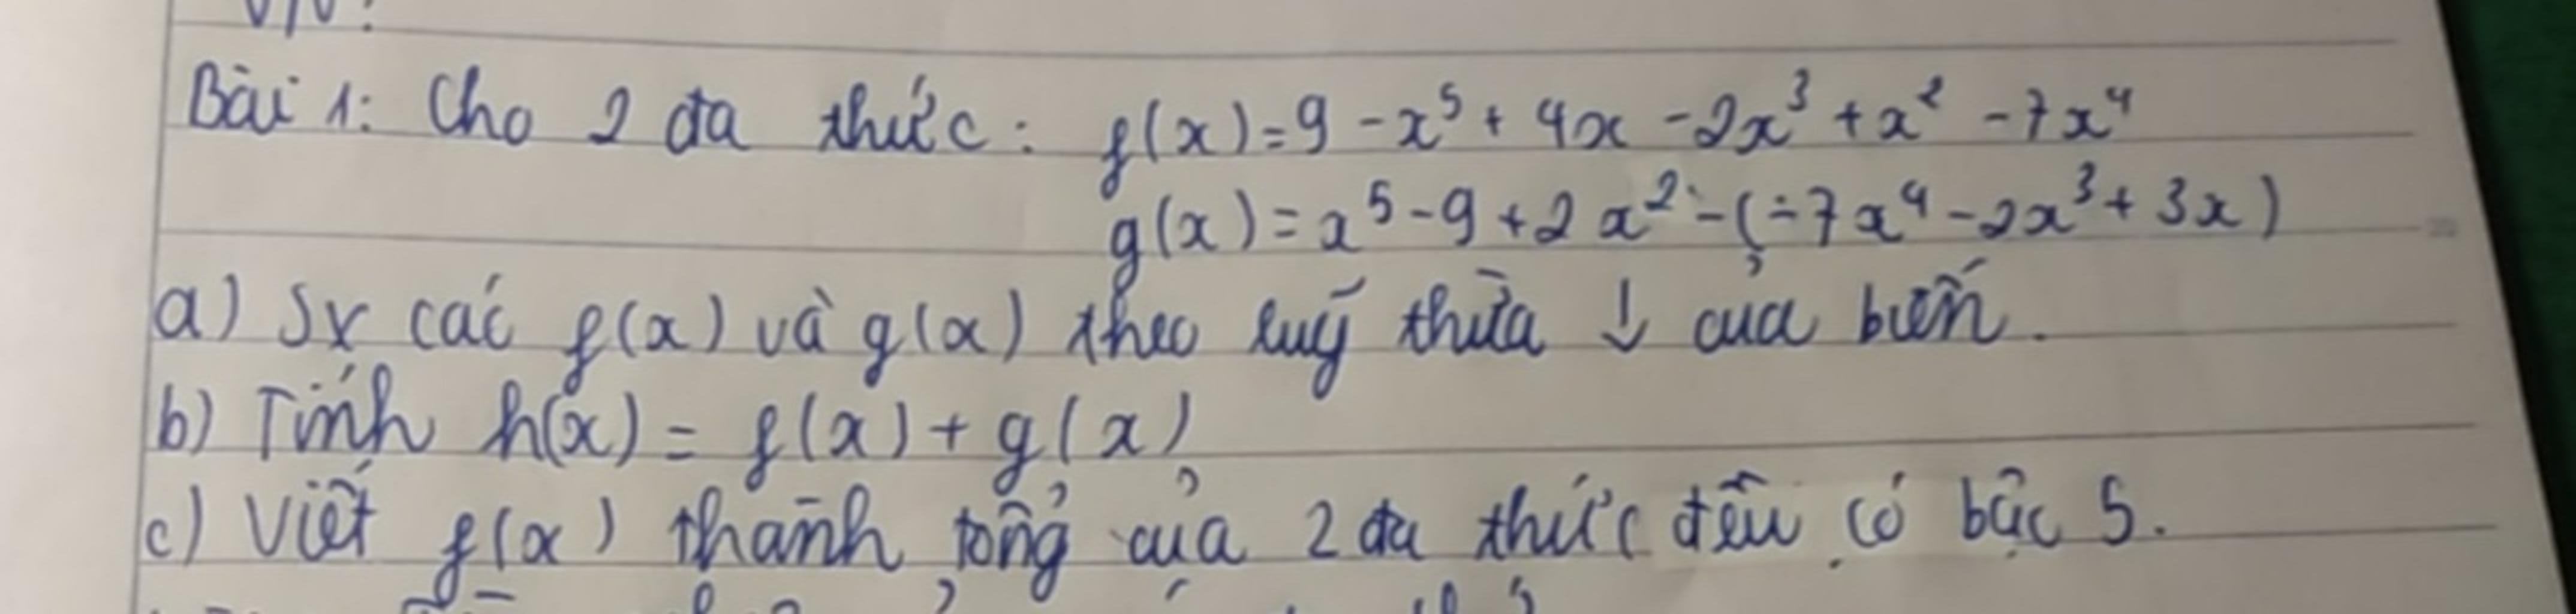 Bài 1: Cho 2 đa thức: f(x)=9-x⁵+4x-2x³+x²-7x⁴
g(x)=x⁵-9+2x²-(-7x⁴-2x³+3x)
a) Sx các f(x) và g(x) theo luỹ thừa ↓ của biến.
b) Tính h(x)=f(x)+g(x)
c) Viết f(x) thành tổng của 2 đa thức đều có bậc 5.